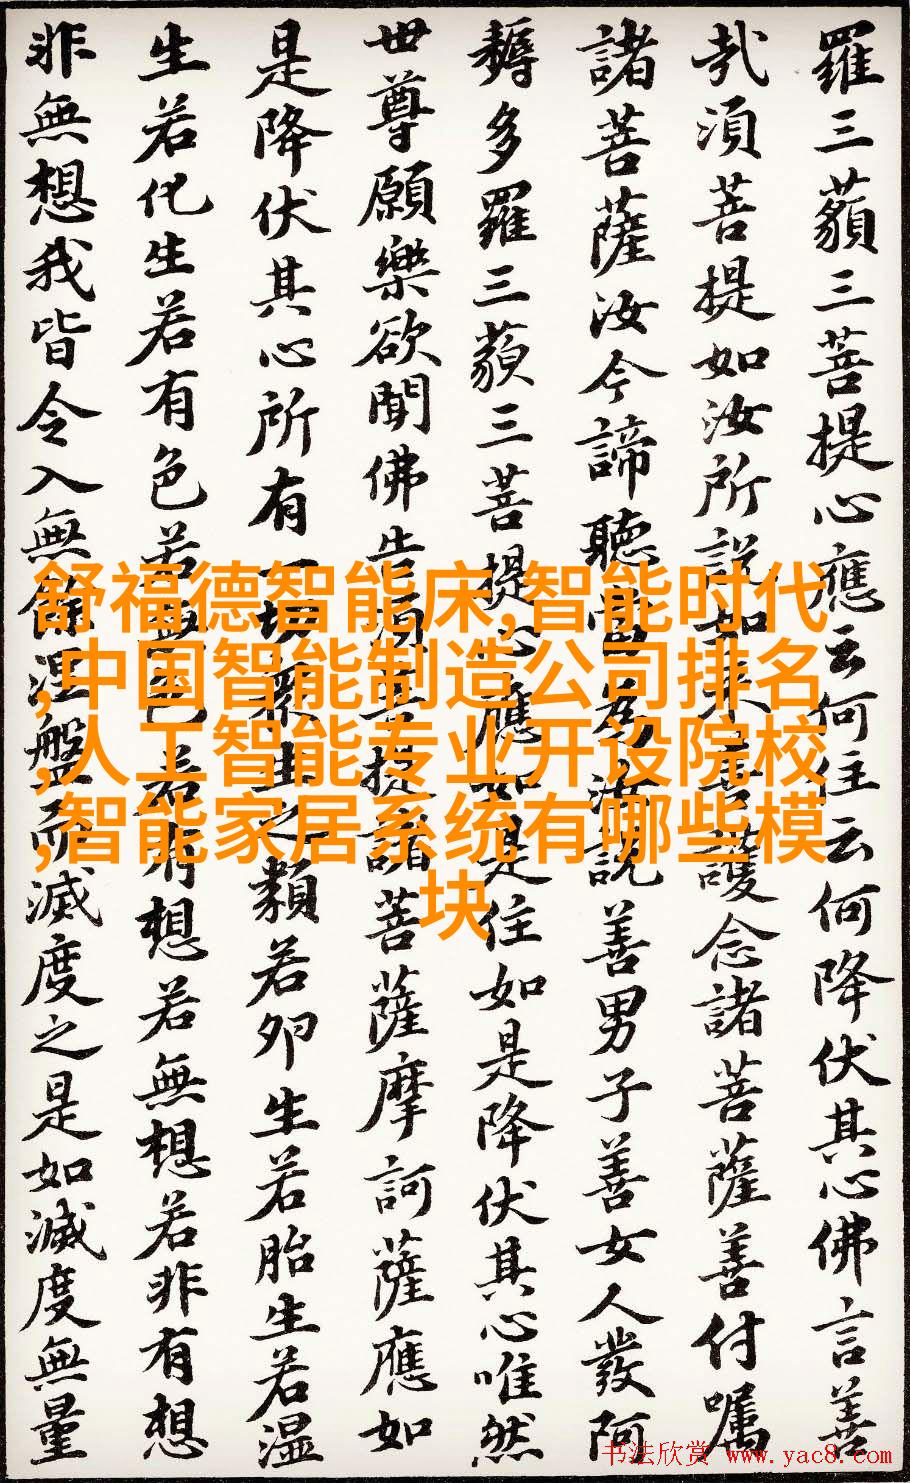 羅三藐三菩提心應云何住云何降伏其心佛言善
哉須菩提如汝所說如來善護念諸菩薩善付囑
諸菩薩汝今諦聽當為汝說善男子善女人發阿
耨多羅三藐三菩提心應如是住如是降伏其心唯然
世尊願樂欲聞佛告須菩提諸菩薩摩訶薩應如
是降伏其心所有一切眾生之類若卵生若胎生若湿
生若化生若有色若無色若有想若無想若非有想
非無想我皆令入無餘涅盤而滅度之是如滅度無量
舒福德智能床,智能时代
,中国智能制造公司排名
,人工智能专业开设院校
,智能家居系统有哪些模
块
书法欣赏 www.yac8.com